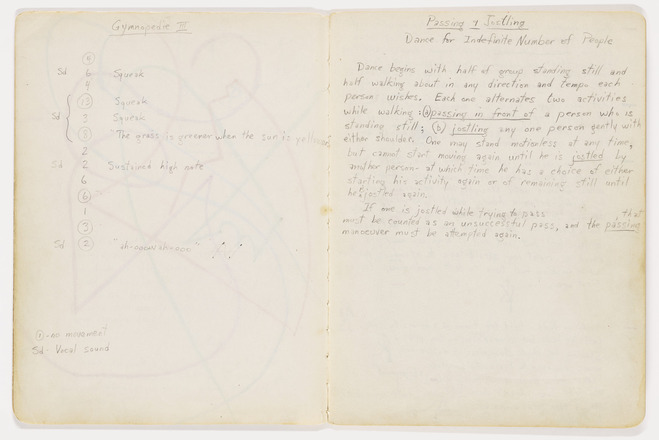 Gymnopedie III
4
Sd 6 Squeak
4
13 Squeak
Sd 3 Squeak
3 "The grass is greener when the sun is yellower"
2
Sd 2 Sustained high note
6
6
1
3
Sd 2
① - no movement
Sd - Vocal sound
Passing & Jostling
Dance for Indefinite Number of People
Dance begins with half of group standing still and
half walking about in any direction and tempo each
person wishes. Each one alternates two activities
while walking: (a) passing in front of a person who is
standing still; (b) jostling any one person gently with
either shoulder. One may stand motionless at any time,
but cannot start moving again until he is jostled by
another person - at which time he has a choice of either
starting his activity again or of remaining still until
he is jostled again.
If one is jostled while trying to pass , that
must be counted as an unsuccessful pass, and the passing
manoeuver must be attempted again.